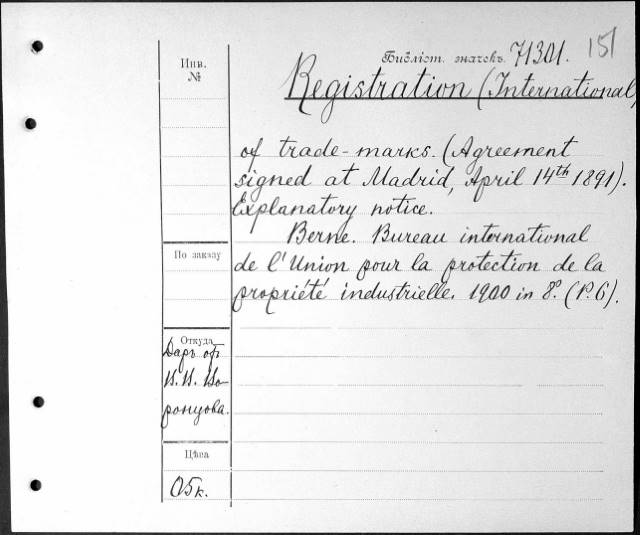 151
Библіот. значекъ. 71301.
Инв.
№
Registration (International)
of trade-marks. (Agreement
signed at Madrid, April 14th 1891).
Explanatory notice.
Berne. Bureau international
de l'Union pour la protection de la
propriété industrielle. 1900 in 8°. (P. 6).
По заказу
Откуда
Даръ от
В. И. Во-
ронцова.
Цѣна
05к.